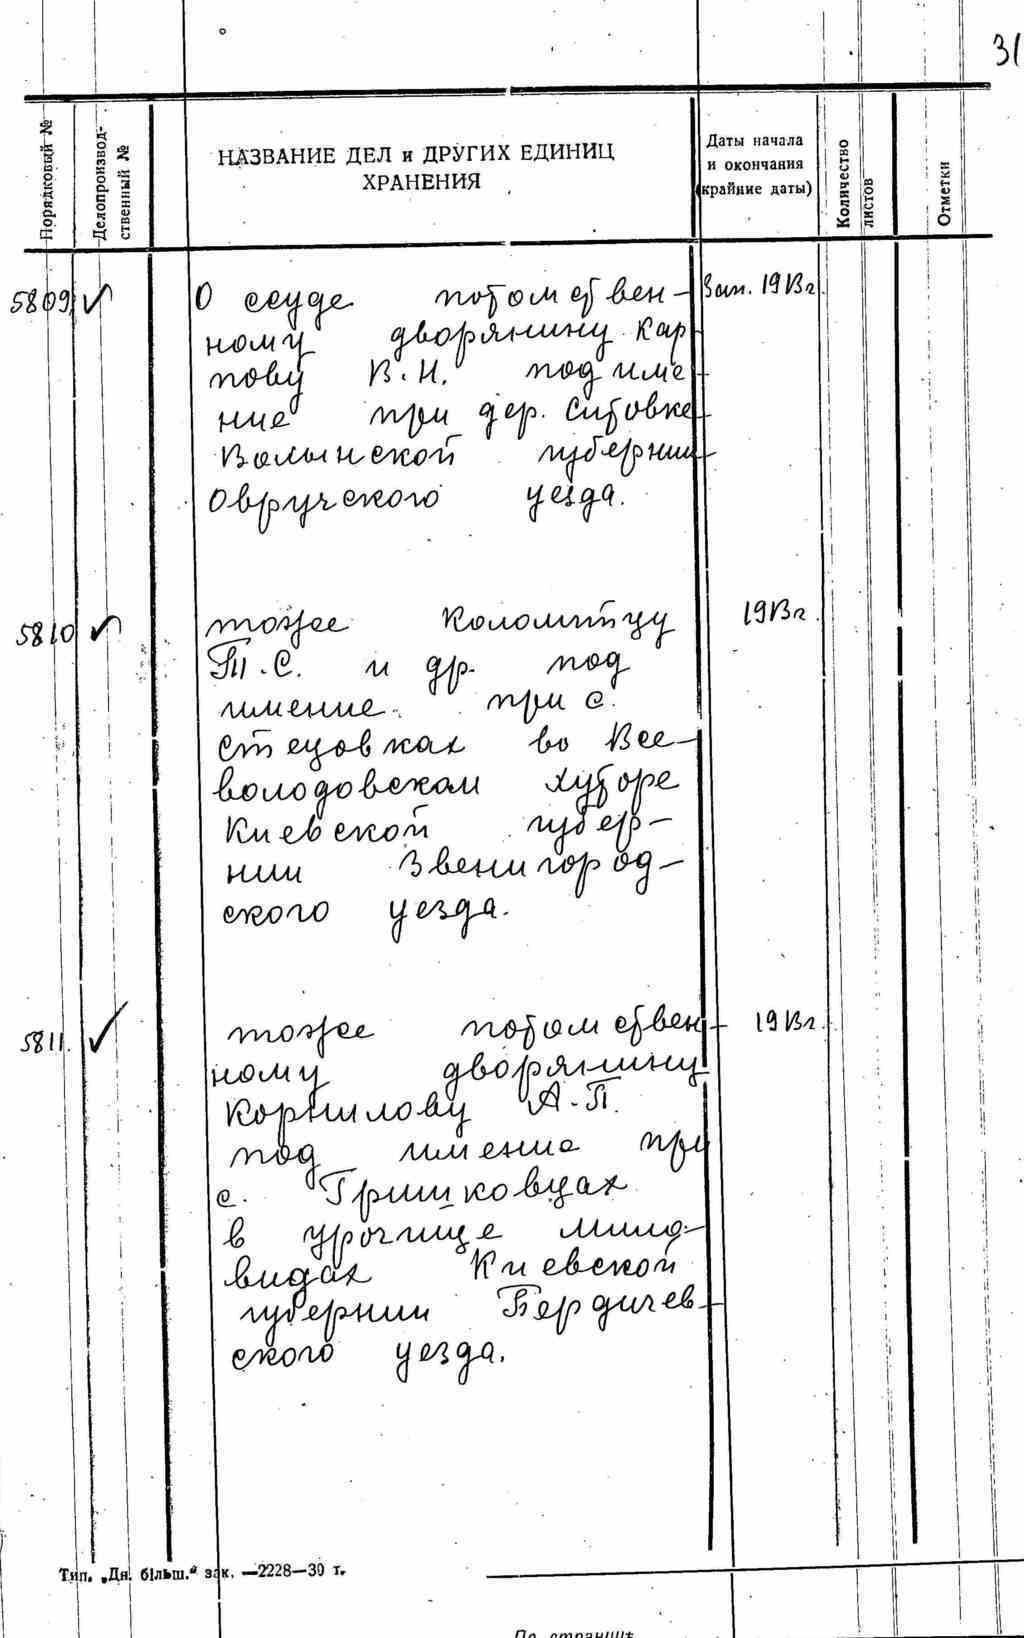 31
Порядковый №
Делопроизвод-
ственный №
НАЗВАНИЕ ДЕЛ и ДРУГИХ ЕДИНИЦ
ХРАНЕНИЯ
Даты начала
и окончания
(крайние даты)
Количество
листов
Отметки
5809 О ссуде потомствен- 1913г.
ному дворянину Кар
пову В.Н. под име
ние при дер. Ситовке
Волынской губернии
Овручского уезда.
5810 тоже Коломийцу 1913г.
Т.С. и др. под
имение при с.
Стецовках во Все-
володовском хуторе
Киевской губер-
нии Звенигород-
ского уезда.
5811. тоже потомствен- 1913г.
ному дворянину
Корнилову А.П.
под имение при
с. Гришковцах
в урочище
Киевской
губернии Бердичев-
ского уезда.
Тип. „Дн. більш.“ зак. —2228—30 т.
По странице